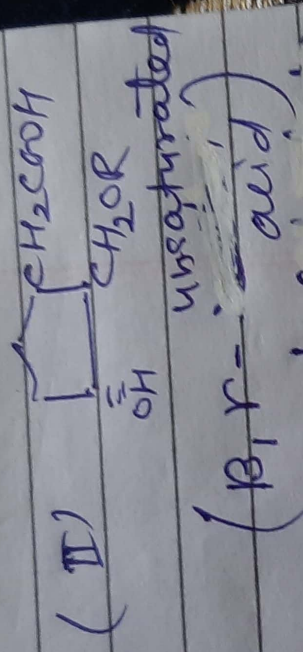 (II)
CH2COOH
CH2OR
OH
(β, γ- unsaturated
acid)